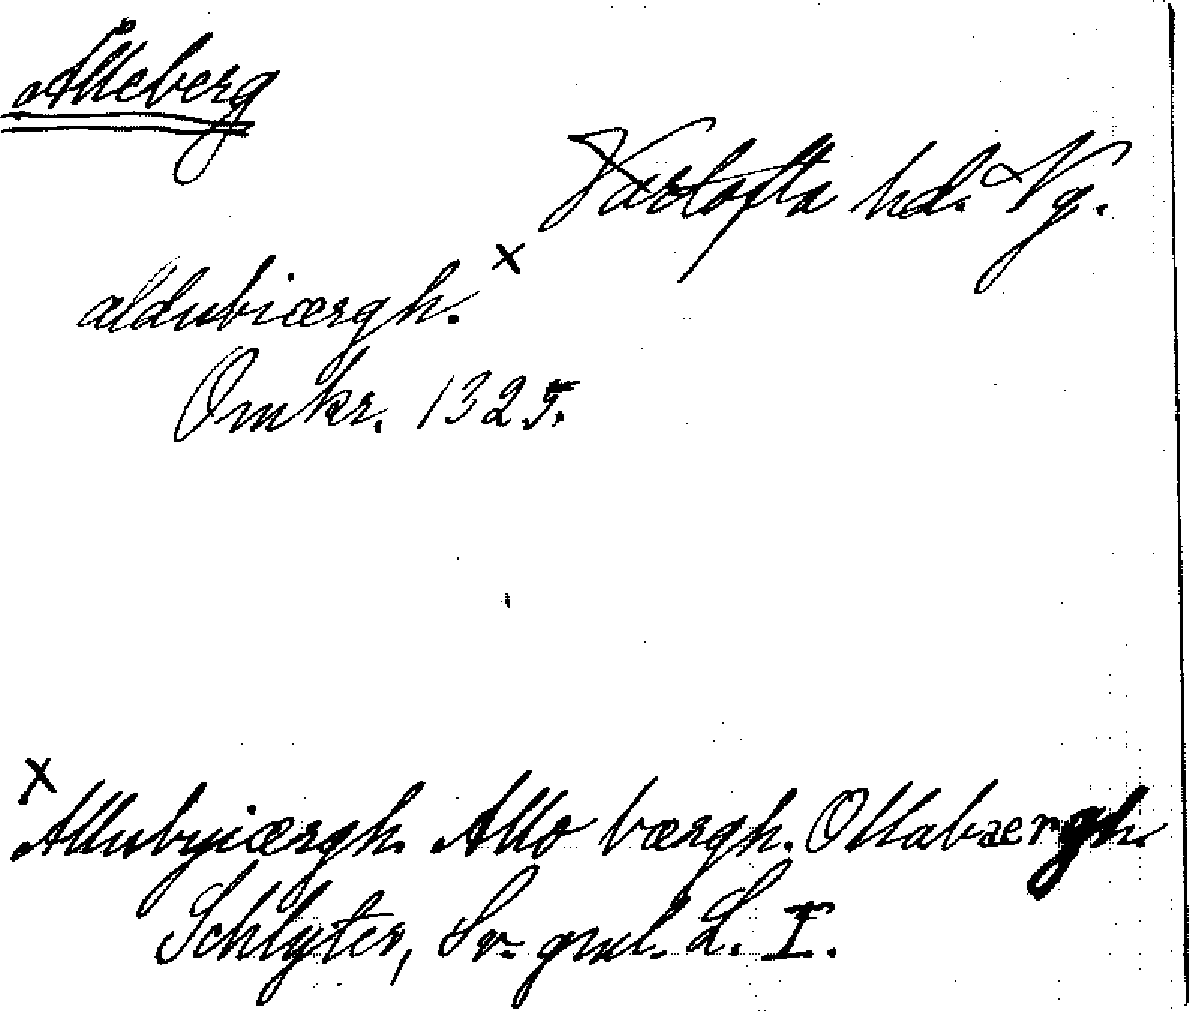 Ålleberg
Vartofta hd. Vg.
aldubiærgh. x
Omkr. 1325.
x
Allubyiærgh. Allo bærgh. Ollabærgh.
Schlyter, Sv. gml. L. I.